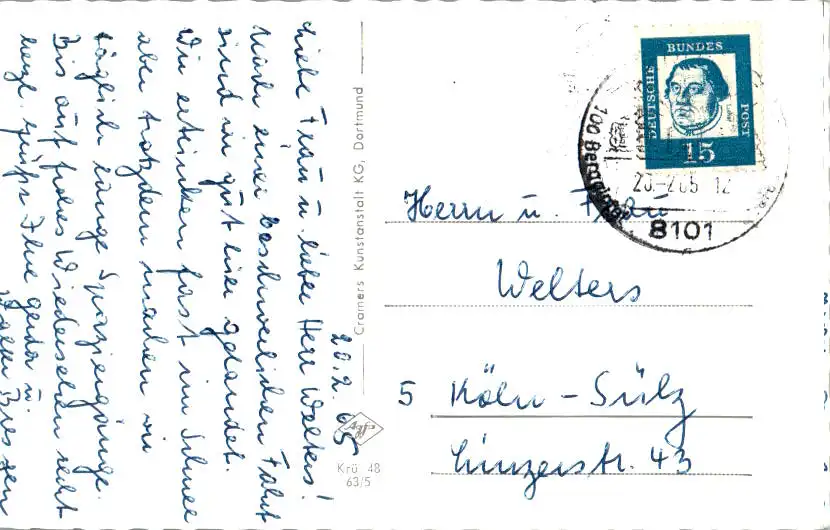 20.2.65
Liebe Frau u. lieber Herr Welters!
Nach einer beschwerlichen Fahrt
sind wir gut hier gelandet.
Wir ertrinken fast im Schnee
aber trotzdem machen wir
täglich lange Spaziergänge.
Bis auf frohes Wiedersehen recht
herzl. Grüße Ihre Gerda u.
Cramers Kunstanstalt KG, Dortmund
Agfa
Krü 48
63/5
DEUTSCHE
BUNDES
POST
15
8101
Herrn u. Frau
Welters
5 Köln - Sülz
Linzerstr. 43